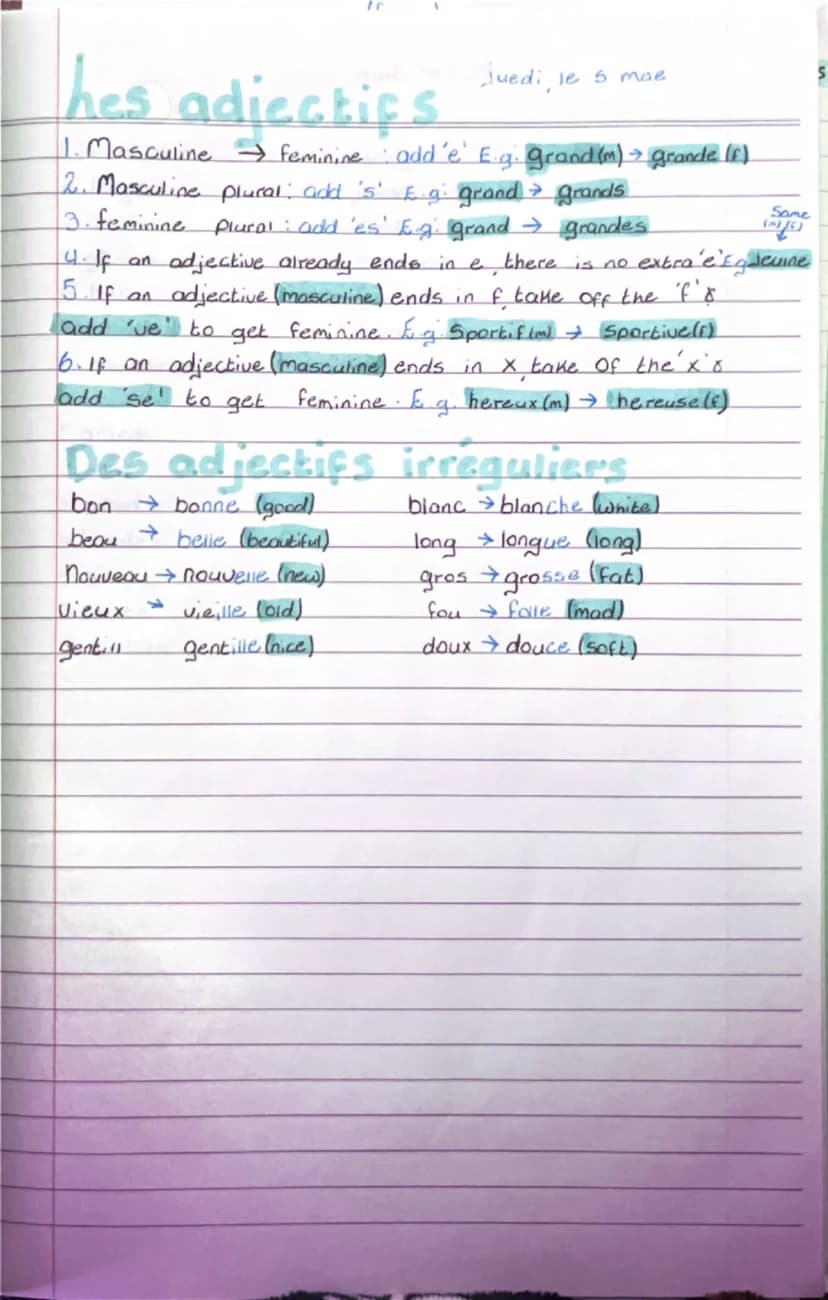 Les adjectifs
juedi, le 5 mae
1. Masculine → feminine : add 'e' E.g. grand(m) → grande (f)
2. Masculine plural: add 's' E.g: grand → grands
3. feminine plural : add 'es' E.g. grand → grandes
Same (m)/(f)
4. If an adjective already ends in e, there is no extra 'e' Eg Jeune
5. If an adjective (masculine) ends in f, take off the 'f' &
add 've' to get feminine. E.g. Sportif(m) → sportive(f)
6. If an adjective (masculine) ends in x, take of the 'x' &
add 'se' to get feminine. E.g. hereux (m) → hereuse(f)
Des adjectifs irréguliers
bon → bonne (good) blanc → blanche (white)
beau → belle (beautiful) long → longue (long)
Nouveau → nouvelle (new) gros → grosse (fat)
Vieux → vieille (old) fou → folle (mad)
gentill gentille (nice) doux → douce (soft)